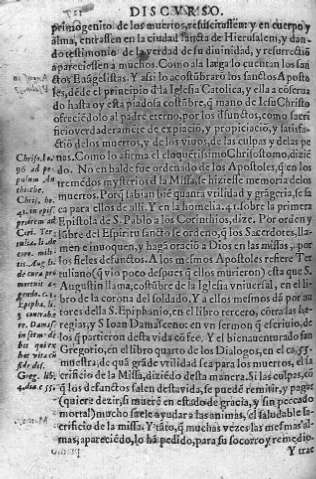 DISCVRSO.
primogenito de los muertos, resuscitassen: y en cuerpo y
alma, entrassen en la ciudad sancta de Hierusalem, y dan-
do testimonio de la verdad de su diuinidad, y resurrectiõ
apareciessen a muchos. Como a la larga lo cuentan los san-
ctos Euãgelistas. Y assi lo acostũbrarõ los sanctos A posto-
les, dẽde el principio dla Iglesia Catolica, y ella a cõserua
do hasta oy esta piadosa costũbre, q̃ mano de Iesu Christo
ofreciẽdolo al padre eterno, por los difunctos, como sacri
ficio verdaderamẽte de expiaciõ, y propiciaciõ, y satisfa-
ctiõ de los muertos, y de los viuos, de las culpas y delas pe
nas. Como lo afirma el eloquẽtissimo Chrisostomo, dizie
do. No en balde fue ordenado de los Apostoles, q̃ en los
tremẽdos mysterios dla Missa, se hiziesse memoria delos
muertos. Porq̃ sabian biẽ quanta vtilidad y grãgeria, se sa
ca para ellos de alli. Y en la homelia. 41. sobre la primera
Epistola de S. Pablo a los Corinthios, dize. Por orden y
labre del Espiritu sancto se ordeno, q̃ los Sacerdotes, lla-
men e inuoquen, y hagã oraciõ a Dios en las missas, por
los fieles defunctos. A los mesmos Apostoles refiere Ter
tuliano (q̃ vio poco despues q̃ ellos murieron) esta que S.
Augustin llama, costũbre de la Iglesia vniuersal, en el li-
bro de la corona del soldado. Y a ellos mesmos dá por au
tores della S. Epiphanio, en el libro tercero, cõtra las he-
regias, y S Ioan Damasceno: en vn sermon q̃ escriuio, de
los q̃ partieron desta vida cõ fee. Y el bienauenturado san
Gregorio, en el libro quarto de los Dialogos, en el ca. 55.
muestra, de quã grãde vtilidad sea para los muertos, el sa
crificio de la Missa, diziẽdo desta manera. Si las culpas, cõ
q̃ los defunctos salen desta vida, se puedẽ remitir, y pagar
(quiere dezir, si muerẽ en estado de gracia, y sin peccado
mortal) mucho suele ayudar a las animas, el saludable sa-
crificio de la missa. Y tãto, q̃ muchas vezes las mesmas al-
mas, apareciẽdo, lo hã pedido, para su socorro y remedio.
Y trae
Chriso. ho.
Chris. ho.
41. in epist.
Cor. Ter-
militis. Au g. li.
de cura pro
Epipha. li.
3. contra
Damas.
in serm. de
his qui ex
hac vita cũ
fide dis.
Greg. lib.
4. dia c. 55.